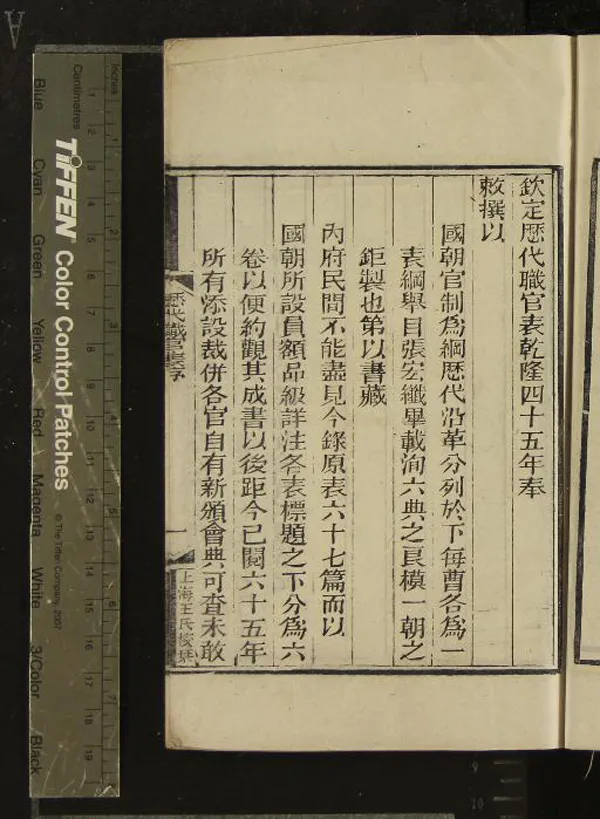 欽定歷代職官表乾隆四十五年奉
敕撰以
國朝官制爲綱歷代沿革分列於下每曹各爲一
表綱舉目張宏纖畢載洵六典之良模一朝之
鉅製也第以書藏
內府民間不能盡見今錄原表六十七篇而以
國朝所設員額品級詳注各表標題之下分爲六
卷以便約觀其成書以後距今已閱六十五年
所有添設裁併各官自有新頒會典可查未敢
歷代職官表序
一
上海王氏校栞
Inches
Centimetres
TIFFEN Color Control Patches
© The Tiffen Company, 2007
Blue
Cyan
Green
Yellow
Red
Magenta
White
3/Color
Black
1 2 3 4 5 6 7
1 2 3 4 5 6 7 8 9 10 11 12 13 14 15 16 17 18 19
A
9
10